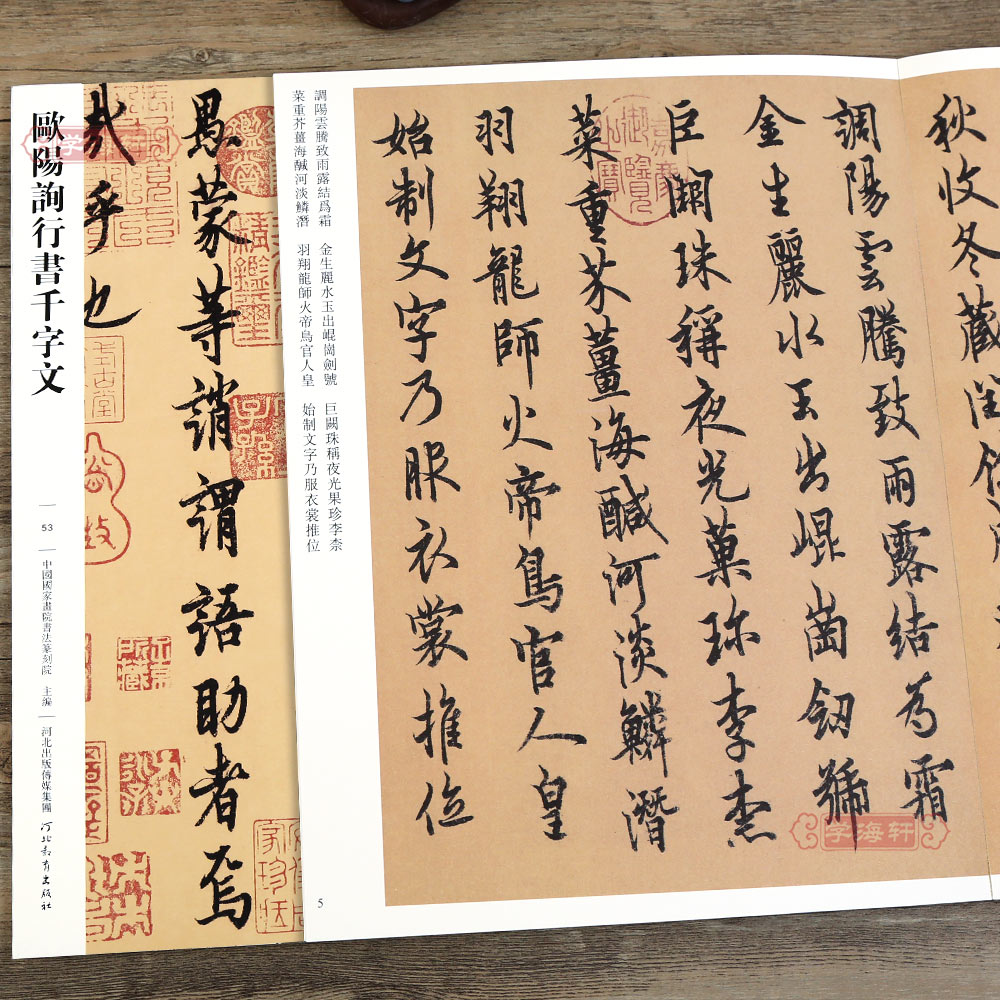 秋收冬藏閏
調陽雲騰致雨露結為霜
金生麗水玉出崐崗劒號
巨闕珠稱夜光菓珎李柰
菜重芥薑海醎河淡鱗潛
羽翔龍師火帝鳥官人皇
始制文字乃服衣裳推位
調陽雲騰致雨露結爲霜 金生麗水玉出崐崗劍號 巨闕珠稱夜光果珍李柰
菜重芥薑海醎河淡鱗潛 羽翔龍師火帝鳥官人皇 始制文字乃服衣裳推位
5
愚蒙等誚謂語助者焉
哉乎也
歐陽詢行書千字文
53
中國國家畫院書法篆刻院 主編
河北出版傳媒集團 河北教育出版社
字海轩